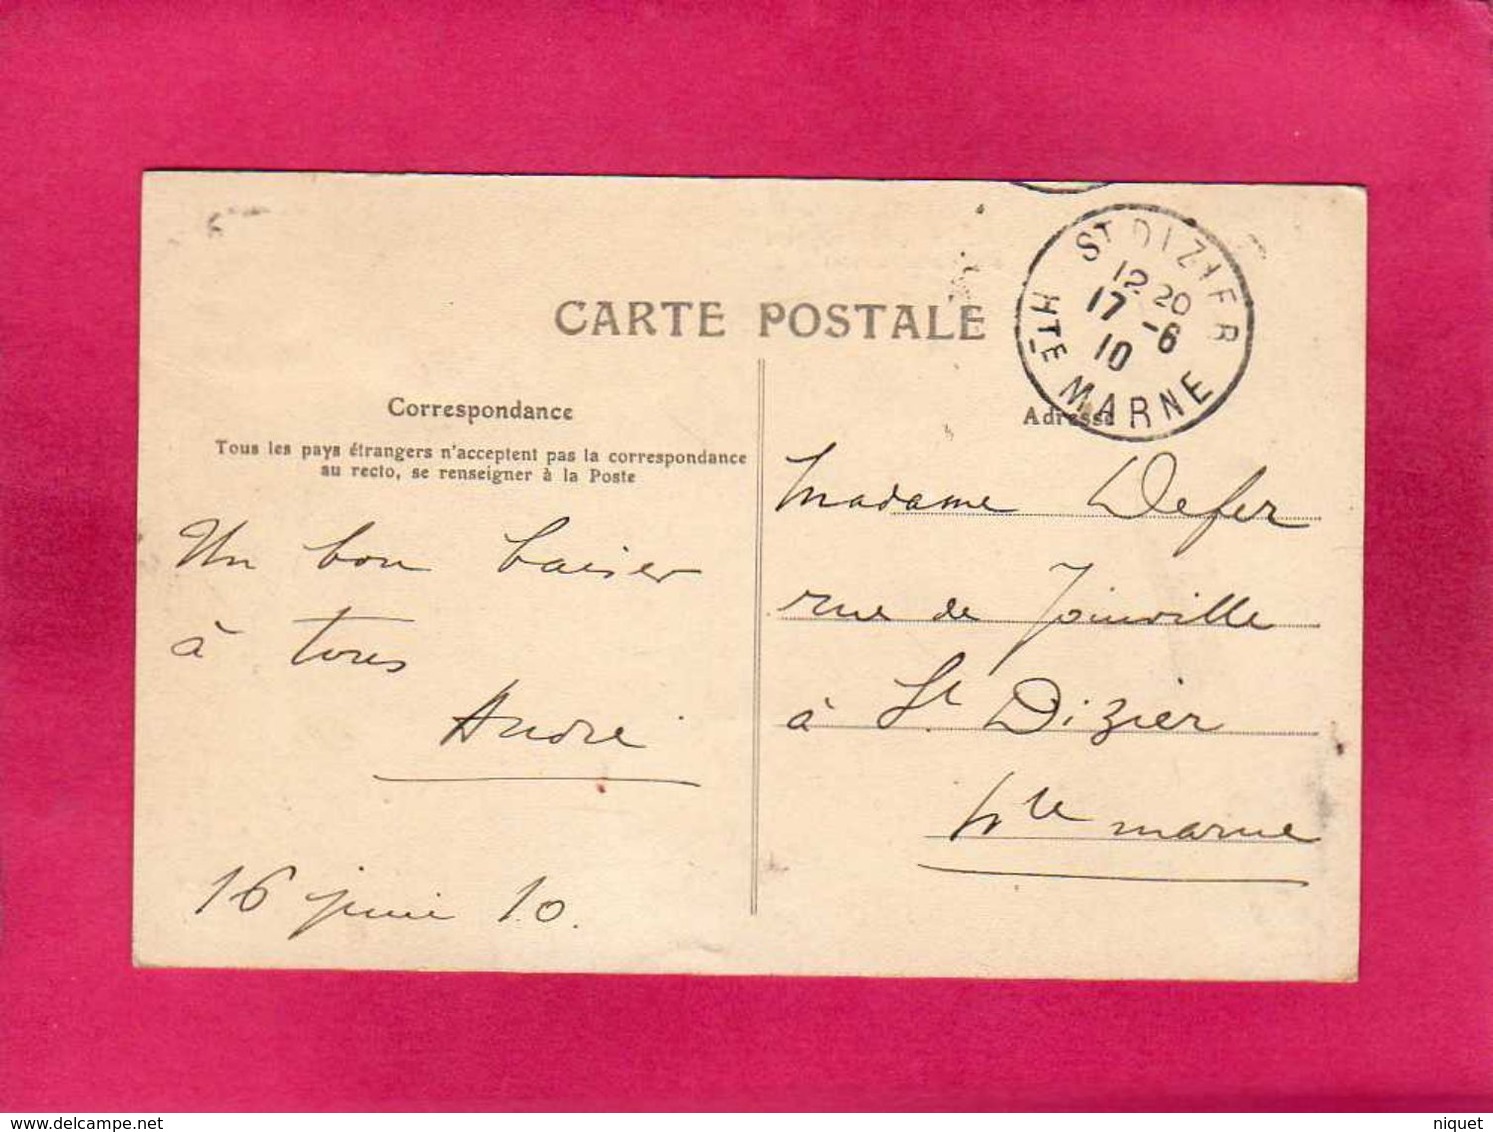 CARTE POSTALE
Correspondance
Tous les pays étrangers n'acceptent pas la correspondance
au recto, se renseigner à la Poste
Un bon baiser
à tous
André
16 juin 10.
ST DIZIER
12 20
17 -6
10
HTE MARNE
Adresse
Madame Defer
rue de Joinville
à St Dizier
Hte marne
delcampe.net
niquet